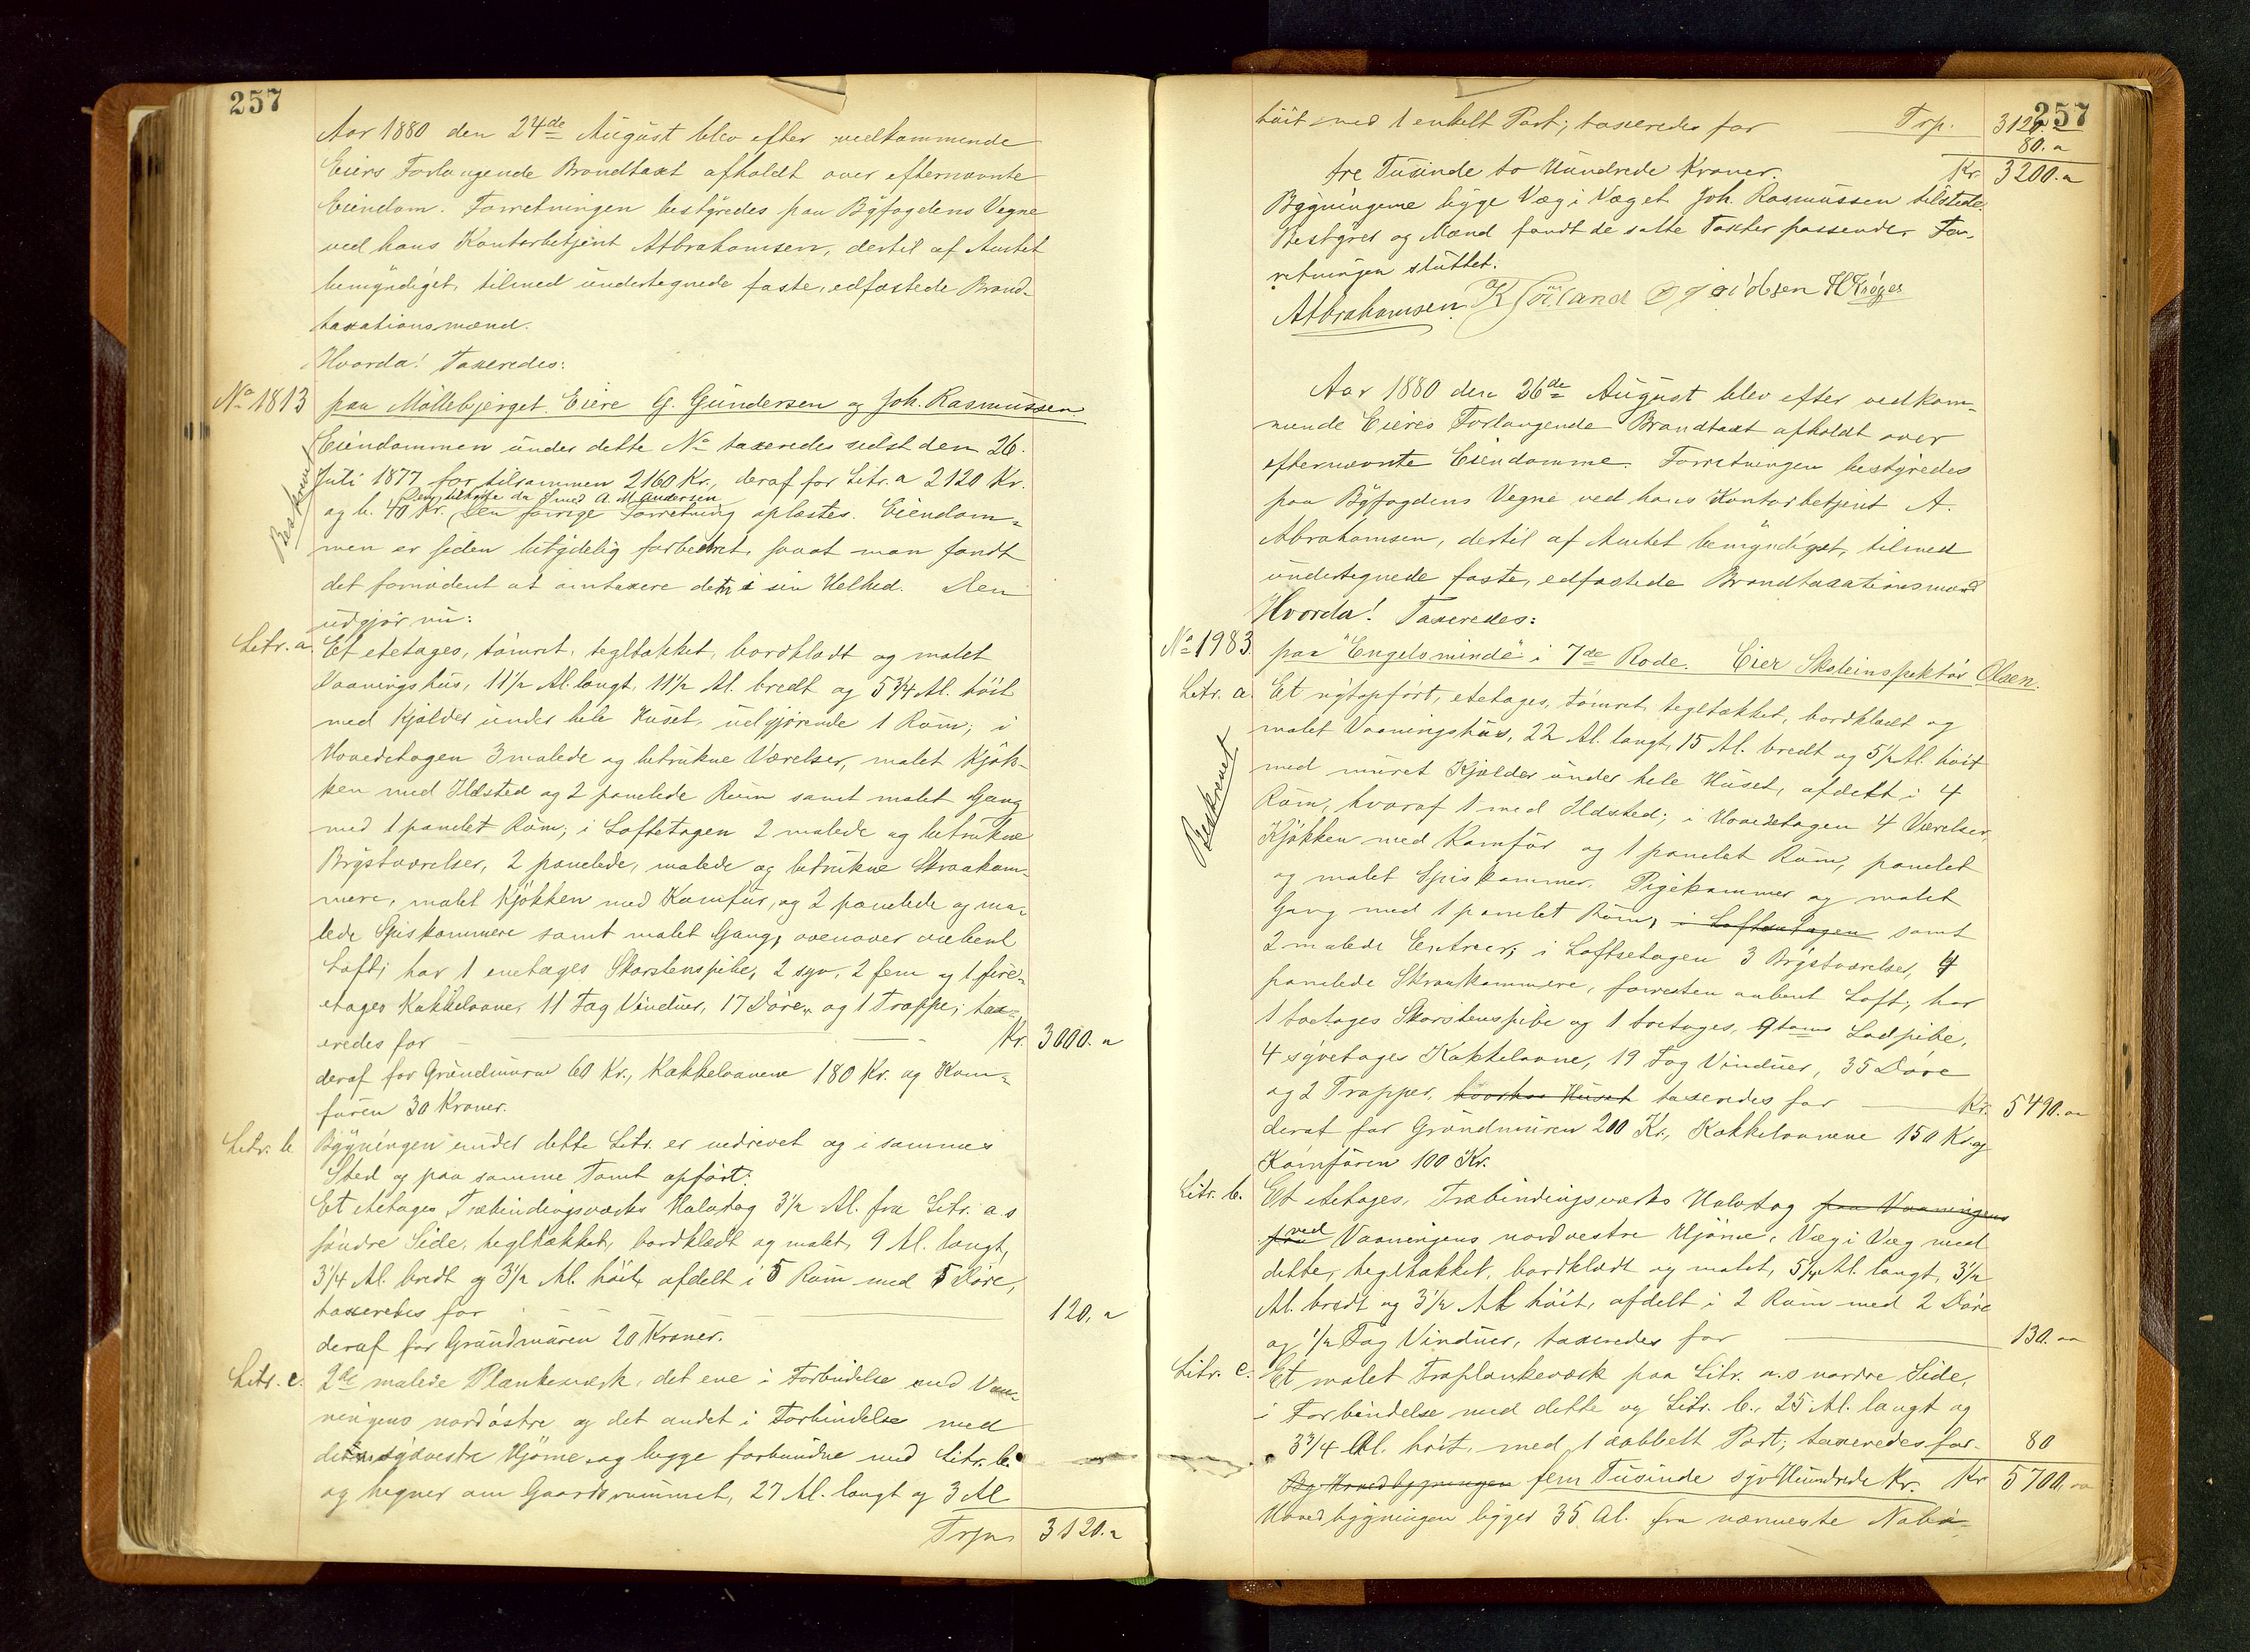 257
Aar 1880 den 24de August blev efter vedkommende
Eiers Forlangende Brandtaxt afholdt over efternævnte
Eiendom. Forretningen bestyredes paa Byfogdens Vegne
ved hans Kontorbetjent A Abrahamsen, dertil af Amtet
bemyndiget, tilmed undertegnede faste, edfæstede Brand-
taxationsmænd.
Hvorda! Taxeredes:
No 1813 paa Møllebjerget. Eiere G. Gundersen og Joh. Rasmussen.
Beskrevet
Eiendommen under dette No taxeredes sidst den 26.
Juli 1877 for tilsammen 2160 Kr., deraf for Litr. a 2120 Kr.
Den tilhørte da Smed A. M Andersen
og b. 40 Kr. Den forrige Forretning oplæstes. Eiendom-
men er siden betydelig forbedret, saaat man fandt
det fornødent at omtaxere den i sin Helhed. Den
udgjør nu:
Litr. a. Et etetages, tømret, tegltækket, bordklædt og malet
Vaaningshus, 11 1/2 Al. langt, 11 1/2 Al. bredt og 5 3/4 Al. høit
med Kjælder under hele Huset, udgjørende 1 Rum; i
Hovedetagen 3 malede og betrukne Værelser, malet Kjøk-
ken med Ildsted og 2 panelede Rum samt malet Gang
med 1 panelet Rum; i Loftetagen 2 malede og betrukne
Brystværelser, 2 panelede, malede og betrukne Skraakam-
mere, malet Kjøkken med Komfur, og 2 panelede og ma-
lede Spiskammere samt malet Gang, ovenover aabent
Loft; har 1 enetages Skorstenspibe, 2 syv, 2 fem og 1 fire-
etages Kakkelovne, 11 Fag Vinduer, 17 Døre, og 1 Trappe; tax-
eredes for Kr. 3000.
deraf for Grundmuren 60 Kr., Kakkelovnene 180 Kr. og Kom-
furen 30 Kroner.
Litr. b Bygningen under dette Litr. er nedrevet og i sammes
Sted og paa samme Tomt opført:
Et etetages Træbindingsværks Halvtag 3 1/2 Al. fra Litr. a.s
søndre Side, tegltækket, bordklædt og malet, 9 Al. langt,
3 1/4 Al. bredt og 3 1/2 Al. høit, afdelt i 5 Rum med 5 Døre,
taxeredes for 120,
deraf for Grundmuren 20 Kroner.
Litr. c. 2de malede Plankeværk, det ene i Forbindelse med Vaa-
ningens nordøstre og det andet i Forbindelse med
dens sydvestre Hjørne og begge forbundne med Litr. b.
og hegner om Gaardsrummet, 27 Al. langt og 3 Al
Trsp. 3120.
257
høit med 1 enkelt Port; taxeredes for Trp. 3120.
80.
tre Tusinde to Hundrede Kroner. Kr. 3200.
Bygningerne ligge Væg i Væg et Joh. Rasmussen tilstede.
Bestyrer og Mænd fandt de satte Taxter passende. For-
retningen sluttet.
A Abrahamsen. Jacobsen H Krøger
Aar 1880 den 26de August blev efter vedkom-
mende Eieres Forlangende Brandtaxt afholdt over
efternævnte Eiendomme. Forretningen bestyredes
paa Byfogdens Vegne ved hans Kontorbetjent A.
Abrahamsen, dertil af Amtet bemyndiget, tilmed
undertegnede faste, edfæstede Brandtaxationsmænd
Hvorda! Taxeredes:
No 1983. paa "Engelsminde" i 7de Rode. Eier Skoleinspektør Olsen.
Beskrevet
Litr. a. Et nytopført, etetages, tømret, tegltækket, bordklædt og
malet Vaaningshus, 22 Al. langt, 15 Al. bredt og 5 1/2 Al. høit
med muret Kjælder under hele Huset, afdelt i 4
Rum, hvoraf 1 med Ildsted; i Hovedetagen 4 Værelser,
Kjøkken med Komfur og 1 panelet Rum, panelet
og malet Spiskammer, Pigekammer og malet
Gang med 1 panelet Rum, i Loftsetagen samt
2 malede Entreer; i Loftsetagen 3 Brystværelser, 4
panelede Skraakammere, forresten aabent Loft; har
1 toetages Skorstenspibe og 1 toetages, 9toms Lodpibe,
4 syvetages Kakkelovne, 19 Fag Vinduer, 35 Døre
og 2 Trapper, hvorhos Huset taxeredes for Kr. 5490.
deraf for Grundmuren 200 Kr., Kakkelovnene 150 Kr. og
Komfuren 100 Kr.
Litr. b. Et etetages, Træbindingsværks Halvtag paa Vaaningens
paa ved Vaaningens nordvestre Hjørne, Væg i Væg med
dette, tegltækket, bordklædt og malet, 5 1/4 Al. langt, 3 1/2
Al. bredt og 3 1/2 Al. høit, afdelt i 2 Rum med 2 Døre
og 1/2 Fag Vinduer, taxeredes for 130.
Litr. c. Et malet Træplankeværk paa Litr. a.s nordre Side,
i Forbindelse med dette og Litr. b., 25 Al. langt og
3 3/4 Al. høit, med 1 dobbelt Port; taxeredes for 80
By Hovedbygningen fem Tusinde syv Hundrede Kr. Kr 5700,
Hovedbygningen ligger 35 Al. fra nærmeste Nabo-